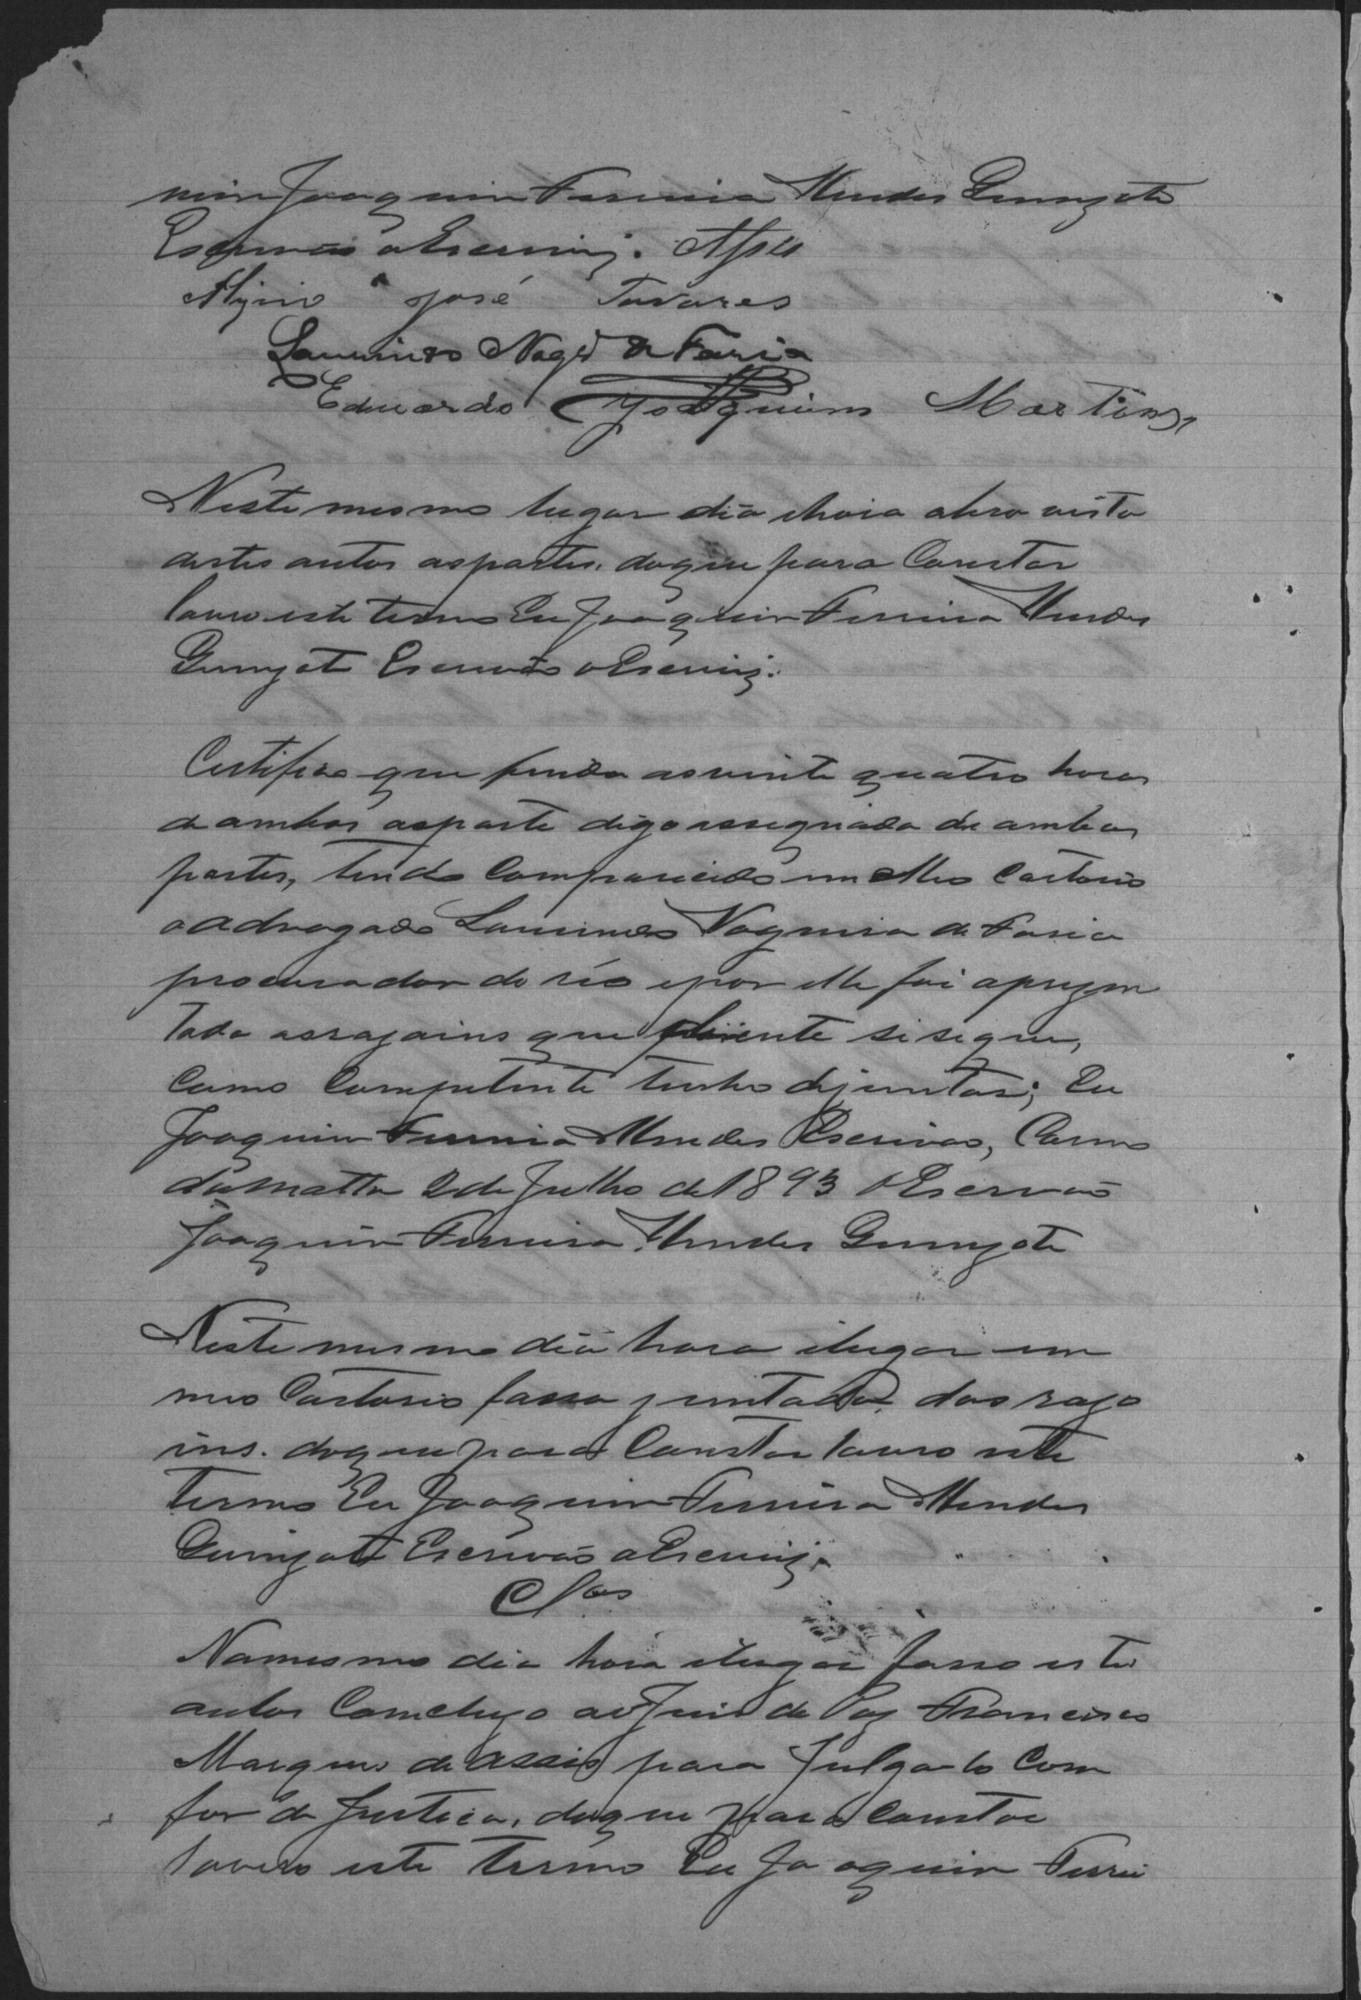 mim Joaquim Ferreira Mendes
Escrivão o Escrevij.
Hyino José Tavares
Laurindo Nogrª de Faria
Eduardo Joaquim Martins
Neste mesmo lugar dia ehora abro vista
destes autos aspartes, doque para Constar
lavro este termo Eu Joaquim Ferreira Mendes
Escrivão o Escrevij.
Certifico que finda asvinte quatro horas
de ambas asparte digo assignada de ambas
partes, tendo Comparecido em Meo Cartorio
o advogado Laurindo Nogueira de Faria
procurador do réo epor elle foi aprezen
tado asrazoins que se segue,
Como Competente tenho dejuntar; Eu
Joaquim Ferreira Mendes Escrivao, Carmo
damatta 2 de Julho de 1893 o Escrivão
Joaquim Ferreira Mendes
Neste mesmo dia hora elugar em
meo Cartorio fasso juntada das razo
ins. doque para Constar lavro este
termo Eu Joaquim Ferreira Mendes
Escrivão o Escrevij.
Clos
Namesmo dia hora elugar fasso estes
autos Concluzo ao Juis de Paz Francisco
Marques de assis para Julgalo Com
for de Justica, doque para Constar
lavro este termo Eu Joaquim Ferrei